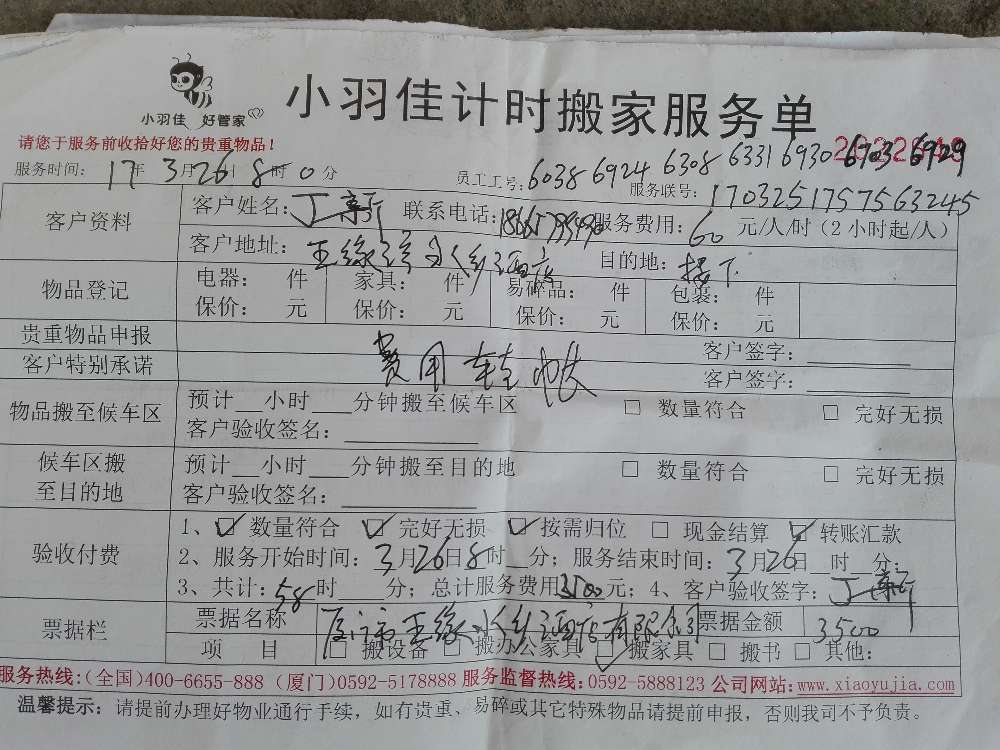 小羽佳 好管家
小羽佳计时搬家服务单
请您于服务前收拾好您的贵重物品！
服务时间：17年3月26日8时0分
员工工号：6038 6924 6308 6331 6930 6703 6929
服务联号：1703251757563245
客户资料
客户姓名：丁
联系电话：
服务费用：60 元/人/时（2小时起/人）
客户地址：
目的地：楼下
物品登记
电器： 件 家具： 件 易碎品： 件 包裹： 件
保价： 元 保价： 元 保价： 元 保价： 元
贵重物品申报
客户签字：
费用转收
客户特别承诺
客户签字：
物品搬至候车区
预计__小时___分钟搬至候车区 □ 数量符合 □ 完好无损
客户验收签名：
候车区搬
至目的地
预计__小时___分钟搬至目的地 □ 数量符合 □ 完好无损
客户验收签名：
验收付费
1、☑ 数量符合 ☑ 完好无损 ☑ 按需归位 □ 现金结算 ☑ 转账汇款
2、服务开始时间：3月26日8时__分；服务结束时间：3月26日__时__分；
3、共计：58时___分；总计服务费用3500元；4、客户验收签字：丁
票据栏
票据名称
厦门市王缘水乡酒店有限公司
票据金额
3500
项 目
□ 搬设备 □ 搬办公家具 ☑ 搬家具 □ 搬书 □ 其他：
服务热线：(全国)400-6655-888 (厦门)0592-5178888 服务监督热线：0592-5888123 公司网站：www.xiaoyujia.com
温馨提示：请提前办理好物业通行手续，如有贵重、易碎或其它特殊物品请提前申报，否则我司不予负责。